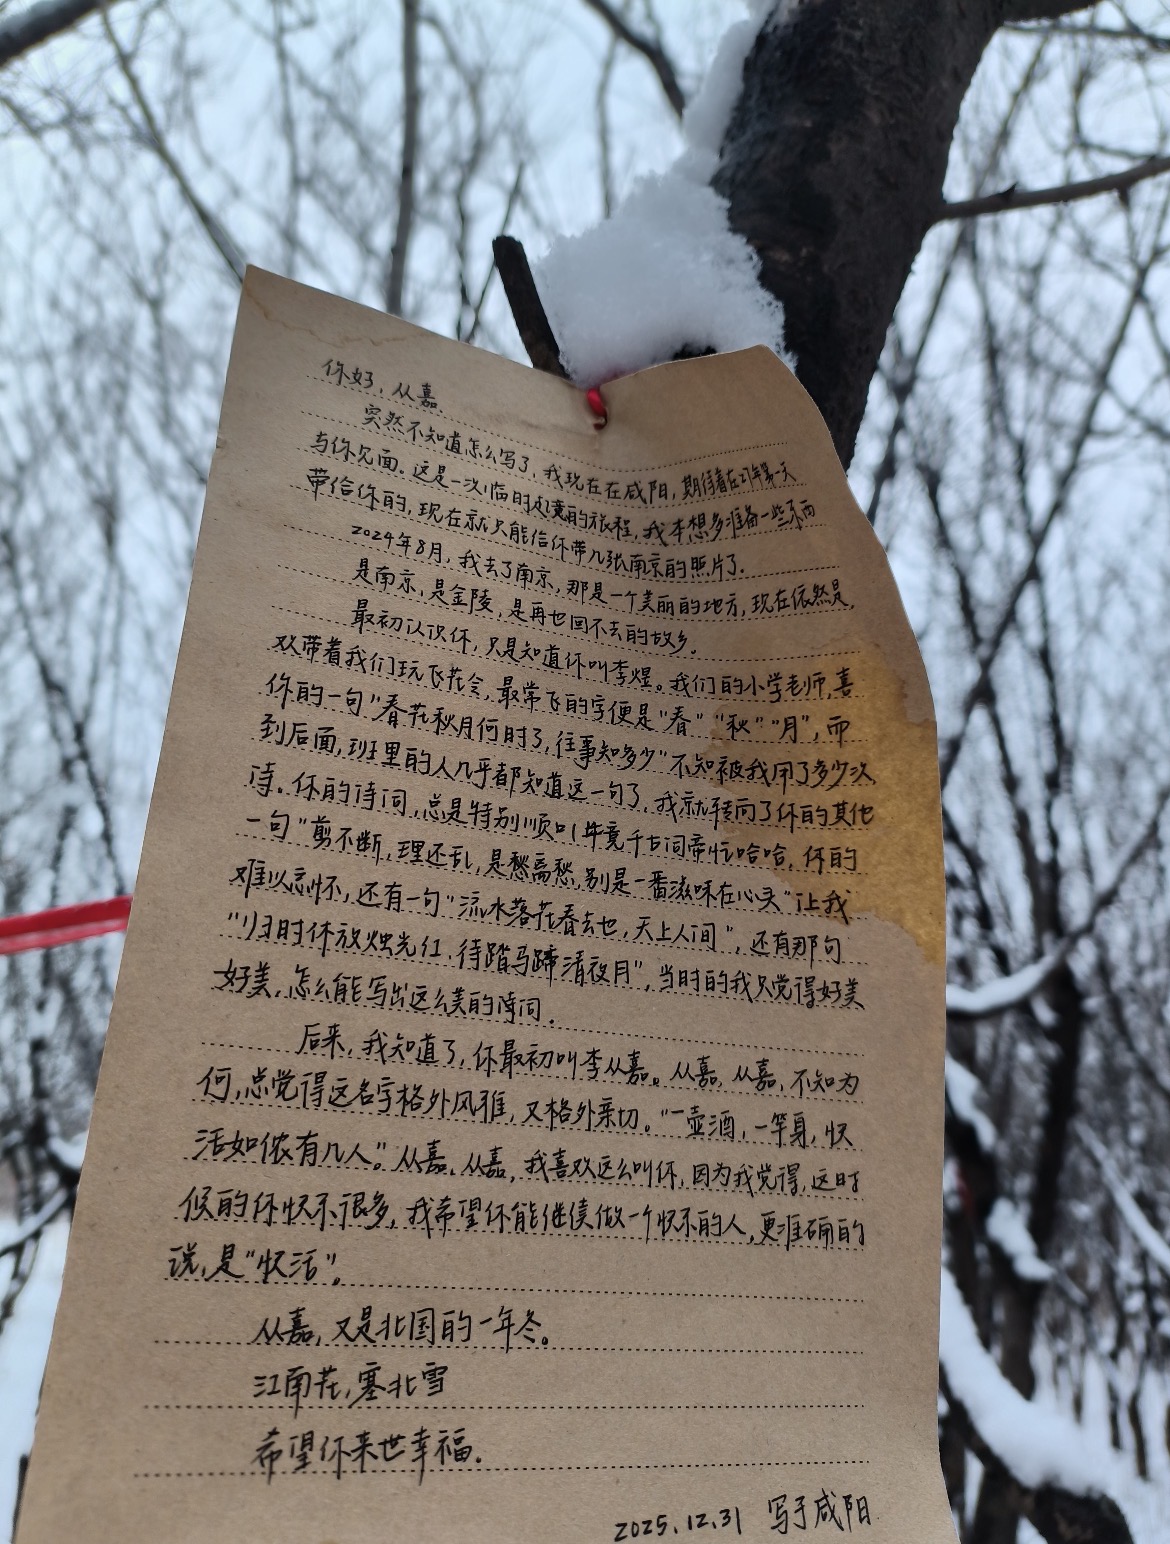 你好，从嘉
突然不知道怎么写了，我现在在咸阳，期待着在26年第一天
与你见面。这是一次临时起意的旅程，我本想多准备一些东西
带给你的，现在就只能给你带几张南京的照片了.
2024年8月，我去了南京，那是一个美丽的地方，现在依然是，
是南京，是金陵，是再也回不去的故乡.
最初认识你，只是知道你叫李煜。我们的小学老师，喜
欢带着我们玩飞花令，最常飞的字便是“春”“秋”“月”，而
你的一句“春花秋月何时了，往事知多少”不知被我用了多少次，
到后面，班里的人几乎都知道这一句了，我就转向了你的其他
诗。你的诗词，总是特别顺口，毕竟千古词帝忙哈哈，你的
一句“剪不断，理还乱，是愁离愁，别是一番滋味在心头”让我
难以忘怀，还有一句“流水落花春去也，天上人间”，还有那句
“归时休放烛光红，待踏马蹄清夜月”，当时的我只觉得好美
好美，怎么能写出这么美的诗词.
后来，我知道了，你最初叫李从嘉。从嘉，从嘉，不知为
何，总觉得这名字格外风雅，又格外亲切。“一壶酒，一竿身，快
活如侬有几人”。从嘉，从嘉，我喜欢这么叫你，因为我觉得，这时
候的你快乐很多，我希望你能继续做一个快乐的人，更准确的
说，是“快活”。
从嘉，又是北国的一年冬。
江南花，塞北雪
希望你来世幸福.
2025.12.31 写于咸阳.